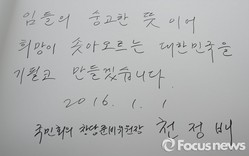 임들의 숭고한 뜻 이어
희망이 솟아오르는 대한민국을
기필코 만들겠습니다.
2016. 1. 1
국민회의 창당준비위원장 천정배
Focusnews